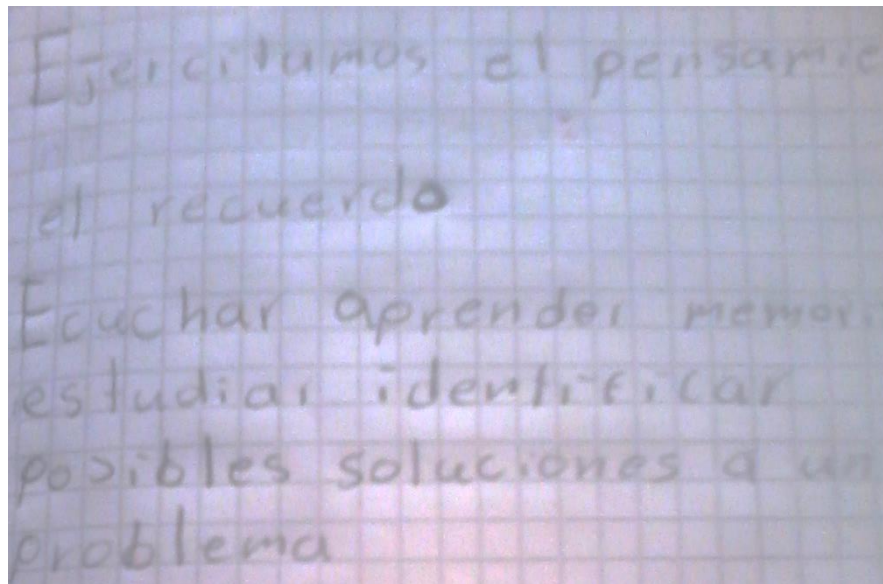 Ejercitamos el pensamie
el recuerdo
Ecuchar aprender memori
estudiar identificar
posibles soluciones a un
problema